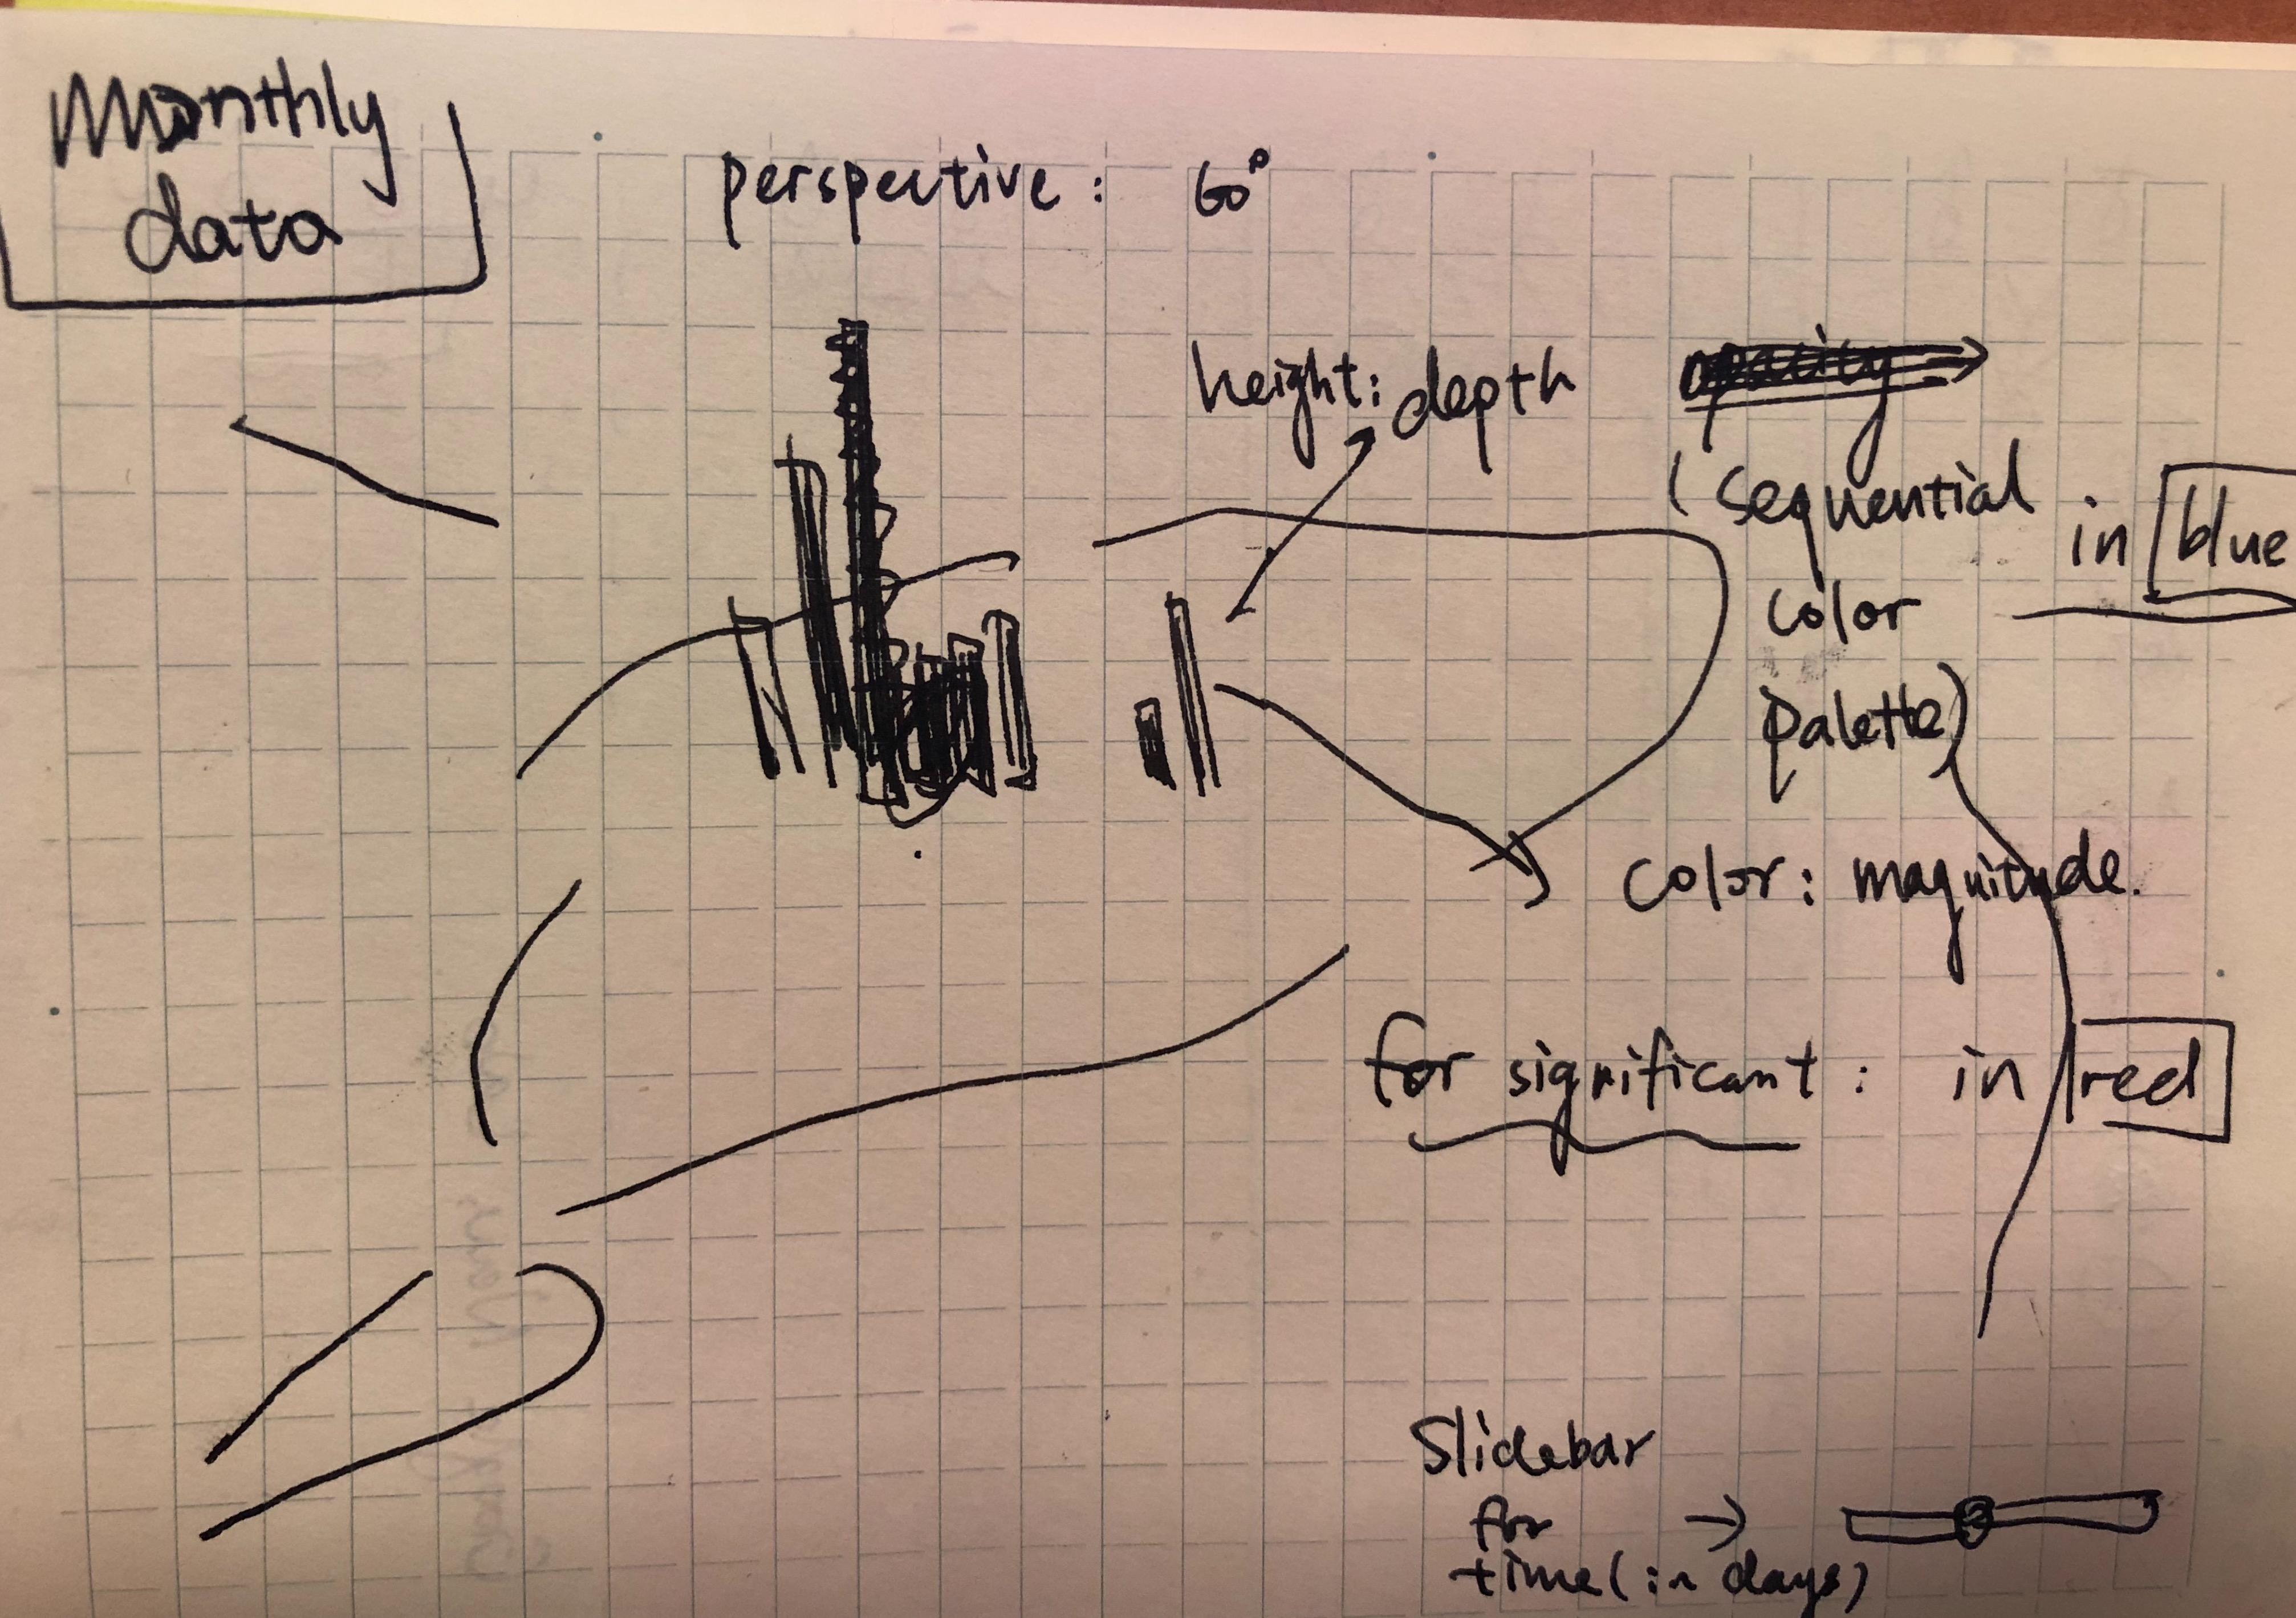 Monthly
data
perspective: 60°
height: depth
opacity
(sequential
in blue
color
palette)
color: magnitude.
for significant: in red
Slidebar
for
time (in days)